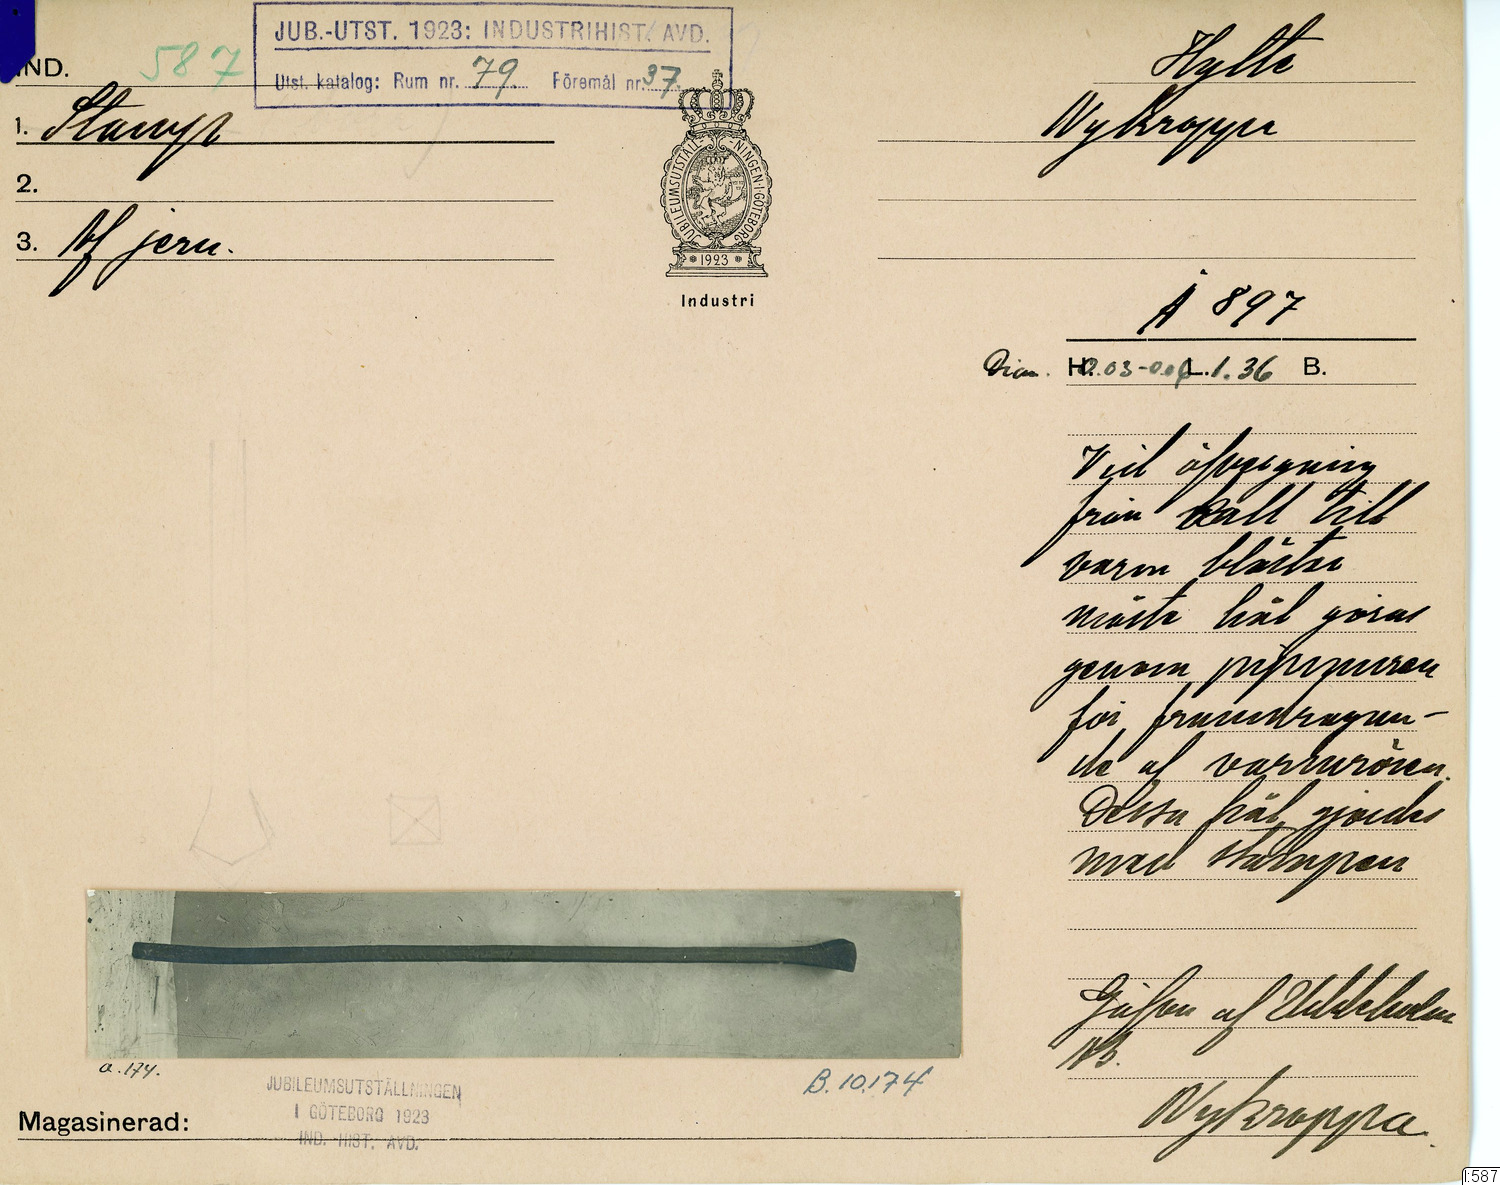 JUB.-UTST. 1923: INDUSTRIHIST. AVD.
Utst. katalog: Rum nr. 79. Föremål nr. 37.
IND. 587
1. Stamp
2.
3. Af jern.
JUBILEUMSUTSTÄLLNINGEN I GÖTEBORG
1923
Industri
Hylte
Nykroppa
A 897
Diam. H. 0.03-0.06 L. 1.36 B.
Vid öfvergning
från kall till
varm bläster
måste hål göras
genom pipmuren
för framdragan-
de af varmrören.
Dessa hål gjordes
med stampen
Gåfva af Uddeholms
AB.
Nykroppa.
a. 174.
B. 10.174
JUBILEUMSUTSTÄLLNINGEN
I GÖTEBORG 1923
IND. HIST. AVD.
Magasinerad:
I:587